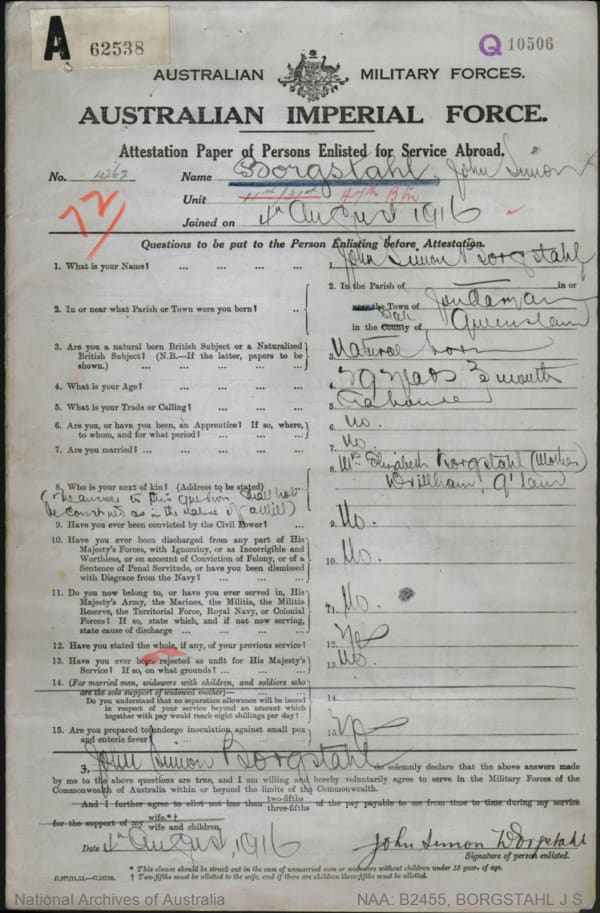 A 62538
Q 10506
AUSTRALIAN MILITARY FORCES.
AUSTRALIAN IMPERIAL FORCE.
Attestation Paper of Persons Enlisted for Service Abroad.
No. 4262 Name Borgstahl, John Simon
72
Unit 47th Btn
Joined on 4th August 1916
Questions to be put to the Person Enlisting before Attestation.
1. What is your Name? ... ... ... ... 1. John Simon Borgstahl
2. In or near what Parish or Town were you born? .. 2. In the Parish of in or
near the Town of Jondaryan
in the County of Queensland
3. Are you a natural born British Subject or a Naturalized
British Subject? (N.B.—If the latter, papers to be
shown.) ... ... ... ... 3. Natural born
4. What is your Age? ... ... ... ... 4. 29 years months
5. What is your Trade or Calling? ... ... ... 5.
6. Are you, or have you been, an Apprentice? If so, where,
to whom, and for what period? ... ... ... 6. No.
7. Are you married? ... ... ... ... 7. No.
8. Who is your next of kin? (Address to be stated) ... 8. Mrs Elizabeth Borgstahl (Mother)
Drillham, Q'land
(The answer to this question shall not
be construed as in the nature of a Will)
9. Have you ever been convicted by the Civil Power? ... 9. No.
10. Have you ever been discharged from any part of His
Majesty's Forces, with Ignominy, or as Incorrigible and
Worthless, or on account of Conviction of Felony, or of a
Sentence of Penal Servitude, or have you been Dismissed
with Disgrace from the Navy? ... ... ... 10. No.
11. Do you now belong to, or have you ever served in, His
Majesty's Army, the Marines, the Militia, the Militia
Reserve, the Territorial Force, Royal Navy, or Colonial
Forces? If so, state which, and if not now serving,
state cause of discharge ... ... ... ... 11. No.
12. Have you stated the whole, if any, of your previous service? 12. Yes
13. Have you ever been rejected as unfit for His Majesty's
Service? If so, on what grounds? ... ... ... 13. No.
14. (For married men, widowers with children, and soldiers who
are the sole support of widowed mother)—
Do you understand that no separation allowance will be issued
in respect of your service beyond an amount which
together with pay would reach eight shillings per day? 14.
15. Are you prepared to undergo inoculation against small pox
and enteric fever? ... ... ... ... 15. Yes
I, John Simon Borgstahl do solemnly declare that the above answers made
by me to the above questions are true, and I am willing and hereby voluntarily agree to serve in the Military Forces of the
Commonwealth of Australia within or beyond the limits of the Commonwealth.
And I further agree to allot not less than two-fifths three-fifths of the pay payable to me from time to time during my service
for the support of my wife.*† wife and children.
Date 4th August, 1916 John Simon Borgstahl
Signature of person enlisted.
* This clause should be struck out in the case of unmarried men or widowers without children under 18 years of age.
† Two-fifths must be allotted to the wife, and if there are children three-fifths must be allotted.
National Archives of Australia NAA: B2455, BORGSTAHL J S